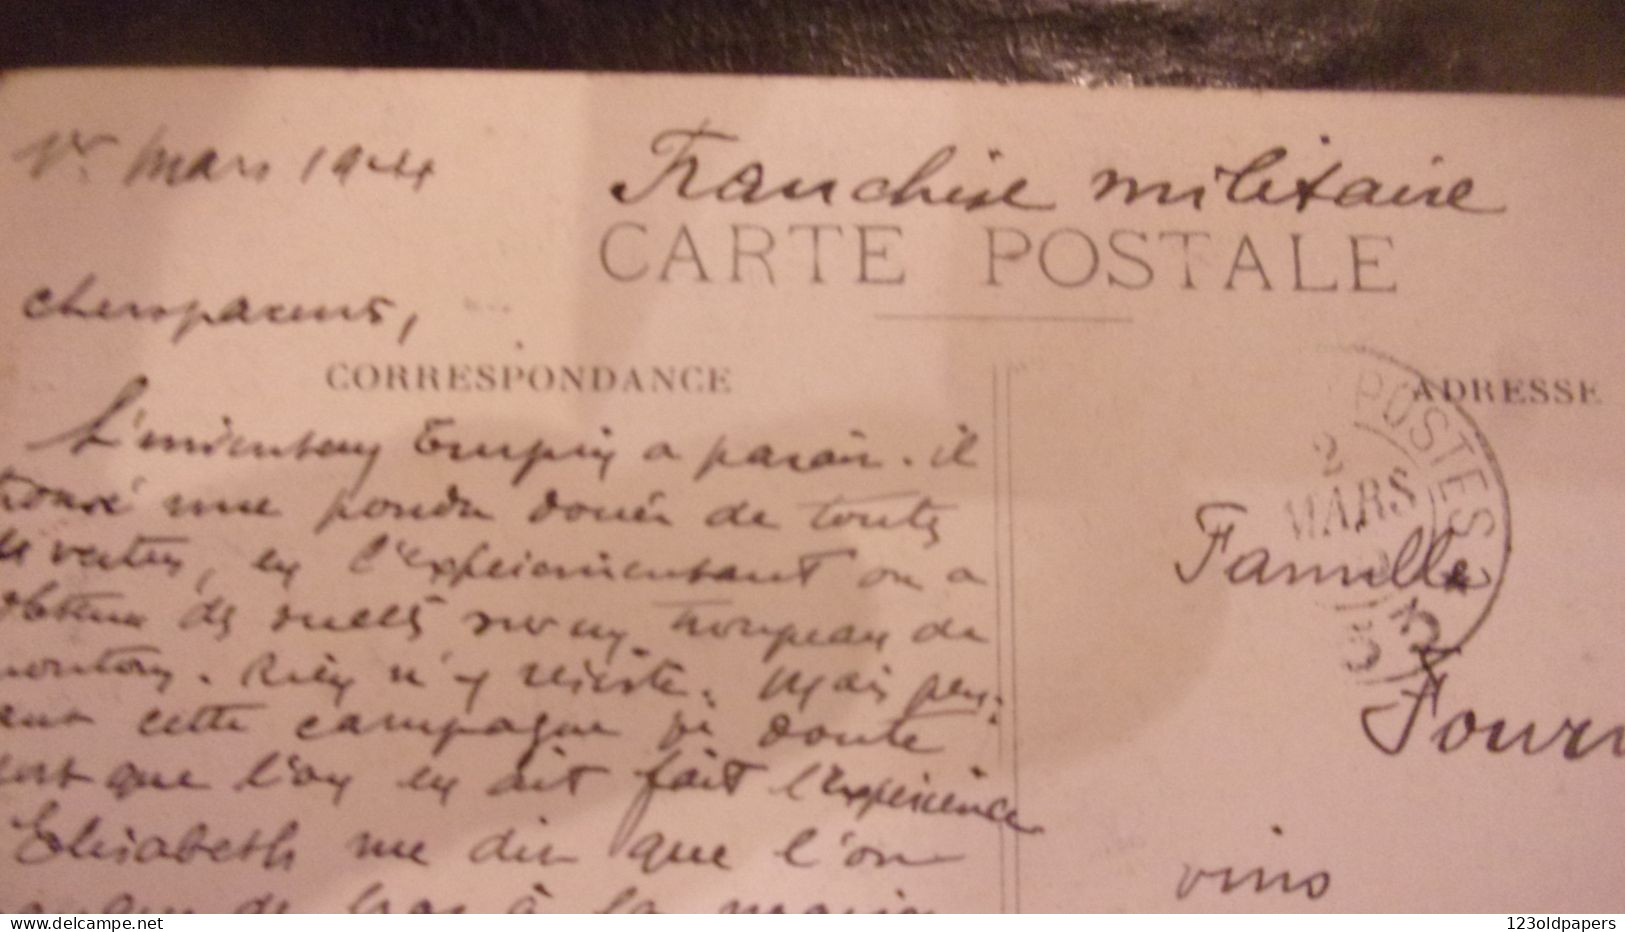 1er mars 19
Franchise militaire
CARTE POSTALE
chers parents,
CORRESPONDANCE
ADRESSE
L'inventeur Turpin a paraît. il
trouvé une poudre douée de toutes
vertus, en l'expérimentant on a
obtenu des succès sur un troupeau de
moutons. Rien n'y résiste. Mais pen-
dant cette campagne je doute
fort que l'on en ait fait l'expérience
Elisabeth me dit que l'on
de à la
POSTES
2
MARS
Famille
Fourn
vins
123oldpapers